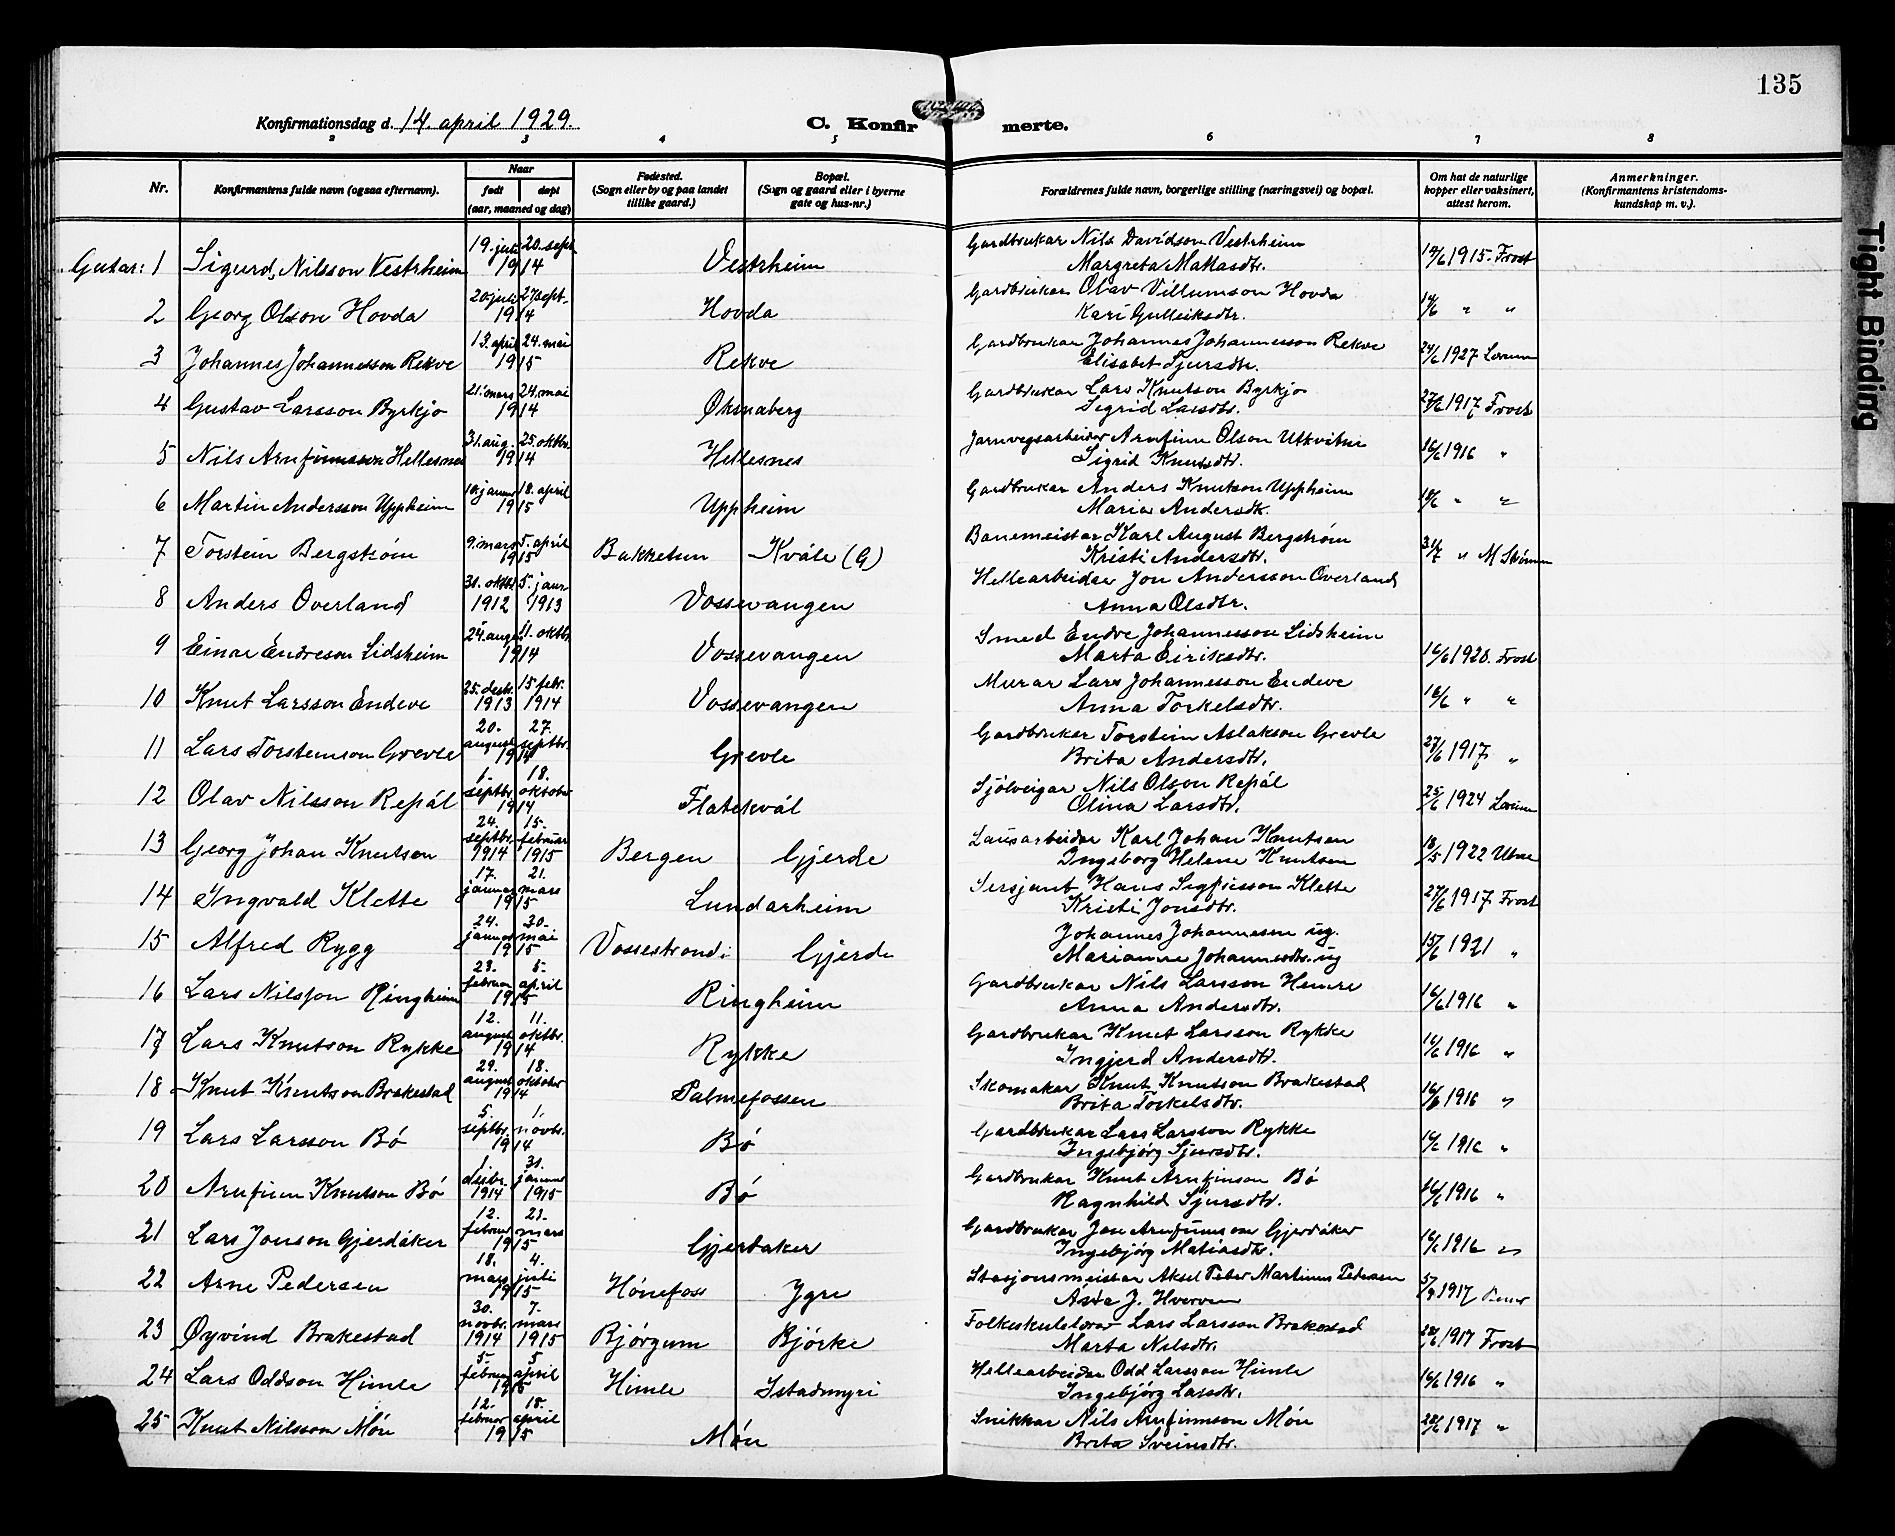 135
Konfirmationsdag d. 14. april 1929.
C. Konfirmerte.
2 3 4 5 6 7 8
Nr.
Konfirmantens fulde navn (ogsaa efternavn).
Naar
født døpt
(aar, maaned og dag)
Fødested.
(Sogn eller by og paa landet
tillike gaard.)
Bopæl.
(Sogn og gaard eller i byerne
gate og hus-nr.)
Forældrenes fulde navn, borgerlige stilling (næringsvei) og bopæl.
Om hat de naturlige
kopper eller vaksinert,
attest herom.
Anmerkninger.
(Konfirmantens kristendoms-
kundskap m. v.).
Gutar: 1 Sigurd Nilsson Vestrheim 19. juli 20. sept 1914 Vestrheim Gardbrukar Nils Davidson Vestrheim
Margreta Matiasdtr. 14/6 1915. Frost
2 Georg Olson Hovda 20 juli 27 sept. 1914 Hovda Gardbrukar Olav Villumson Hovda
Kari Gulleiksdtr. 14/6 " "
3 Johannes Johannesson Rekve 13. april 24. mai 1915 Rekve Gardbrukar Johannes Johannesson Rekve
Elisabet Sjursdtr. 24/6 1927
4 Gustav Larsson Byrkjo 21. mars 24. mai 1914 Øksnaberg Gardbrukar Lars Knutson Byrkjo
Sigrid Larsdtr. 27/6 1917 Frost
5 Nils Arnfinnsson Hellesnes 31. aug. 25. oktbr 1914 Hellesnes Jarnvegsarbeidar Arnfinn Olson Utkvitne
Sigrid Knutsdtr. 16/6 1916 "
6 Martin Andersson Uppheim 10. januar 18. april 1915 Uppheim Gardbrukar Anders Knutson Uppheim
Maria Andersdtr. 16/6 " "
7 Torstein Bergstrøm 9. mars 5. april 1915 Bakketun Kvåle (G) Banemeistar Karl August Bergstrøm
Kristi Andersdtr. 31/7 " M Skørmen
8 Anders Overland 31. oktbr 1912 5. januar 1913 Vossevangen Hellearbeidar Jon Andersson Overland
Anna Olsdtr.
9 Einar Endreson Lidsheim 24. aug. 11. oktbr 1914 Vossevangen Smed Endre Johannesson Lidsheim
Marta Eiriksdtr. 16/6 1920. Frost
10 Knut Larsson Endeve 25. desbr. 1913 15. febr. 1914 Vossevangen Murar Lars Johannesson Endeve
Anna Torkelsdtr. 16/6 " "
11 Lars Torsteinson Grevle 20. august 27. septbr. 1914 Grevle Gardbrukar Torstein Aslakson Grevle
Brita Andersdtr. 27/6 1917 "
12 Olav Nilsson Repål 1. septbr. 18. oktober 1914 Flatekvål Sjølveigar Nils Olson Repål
Olina Larsdtr. 25/6 1924
13 Georg Johan Knutsen 24. septbr. 1914 15. februar 1915 Bergen Gjerde Lausarbeidar Karl Johan Knutsen
Ingeborg Helene Knutsen 18/5 1922 Utne
14 Ingvald Klette 17. januar 21. mars 1915 Lundarheim Sersjant Hans Sigfusson Klette
Kristi Jonsdtr. 27/6 1917 Frost
15 Alfred Rygg 24. januar 30. mai 1915 Vossestrondi Gjerde Johannes Johannesen ug.
Marianne Johannesdtr. ug 15/6 1921 "
16 Lars Nilsson Ringheim 23. februar 5. april 1915 Ringheim Gardbrukar Nils Larsson Hemre
Anna Andersdtr. 16/6 1916 "
17 Lars Knutson Rykke 12. august 11. oktbr. 1914 Rykke Gardbrukar Knut Larsson Rykke
Ingjerd Andersdtr. 16/6 1916 "
18 Knut Knutson Brakestad 29. august 18. oktober 1914 Palmefossen Skomakar Knut Knutson Brakestad
Brita Torkelsdtr. 16/6 1916 "
19 Lars Larsson Bø 5. septbr. 1. novbr. 1914 Bø Gardbrukar Lars Larsson Rykke
Ingebjørg Sjursdtr. 16/6 1916 "
20 Arnfinn Knutson Bø 1. desbr. 1914 31. januar 1915 Bø Gardbrukar Knut Arnfinson Bø
Ragnhild Sjursdtr. 16/6 1916 "
21 Lars Jonson Gjerdåker 12. februar 21. mars 1915 Gjerdåker Gardbrukar Jon Arnfinnson Gjerdåker
Ingebjørg Matiasdtr. 16/6 1916 "
22 Arne Pedersen 18. mars 4. juli 1915 Hønefoss Ygre Stasjonsmeister Aksel Peter Martinus Pedersen
Asta J. Hverven 1917
23 Øyvind Brakestad 30. novbr. 1914 7. mars 1915 Bjørgum Bjørke Folkeskulelærar Lars Larsson Brakestad
Marta Nilsdtr. 22/6 1917 Frost
24 Lars Oddson Himle 5. februar 5. april 1915 Himle Istadmyri Hellearbeidar Odd Larsson Himle
Ingebjørg Larsdtr. 16/6 1916 "
25 Knut Nilsson Møn 12. februar 18. april 1915 Møn Snikkar Nils Arnfinnson Møn
Brita Sveinsdtr. 22/6 1917 "
Tight Binding